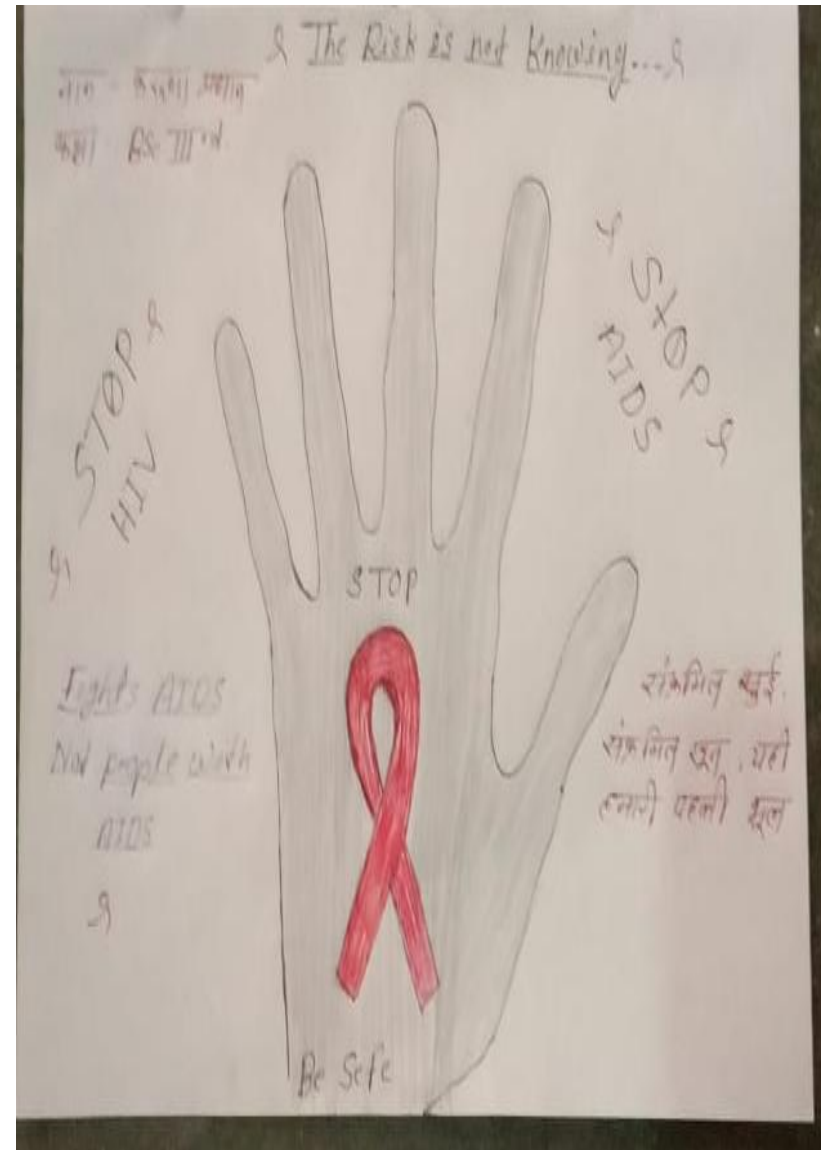 The Risk is not Knowing...
नाम
कक्षा BSc III
STOP
AIDS
STOP
HIV
STOP
Fights AIDS
Not people with
AIDS
संक्रमित सुई,
संक्रमित खून, यही
हमारी पहली भूल
Be Safe